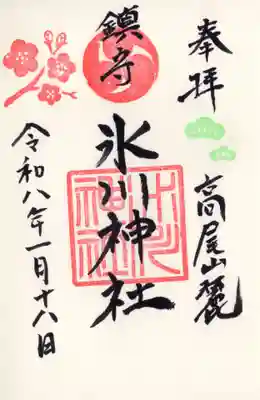 奉拝
高尾山麓
鎮守
氷川神社
令和八年一月十八日
氷川神社